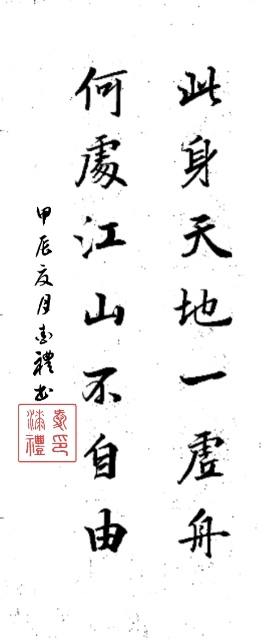 此身天地一虛舟
何處江山不自由
甲辰夏月禮書